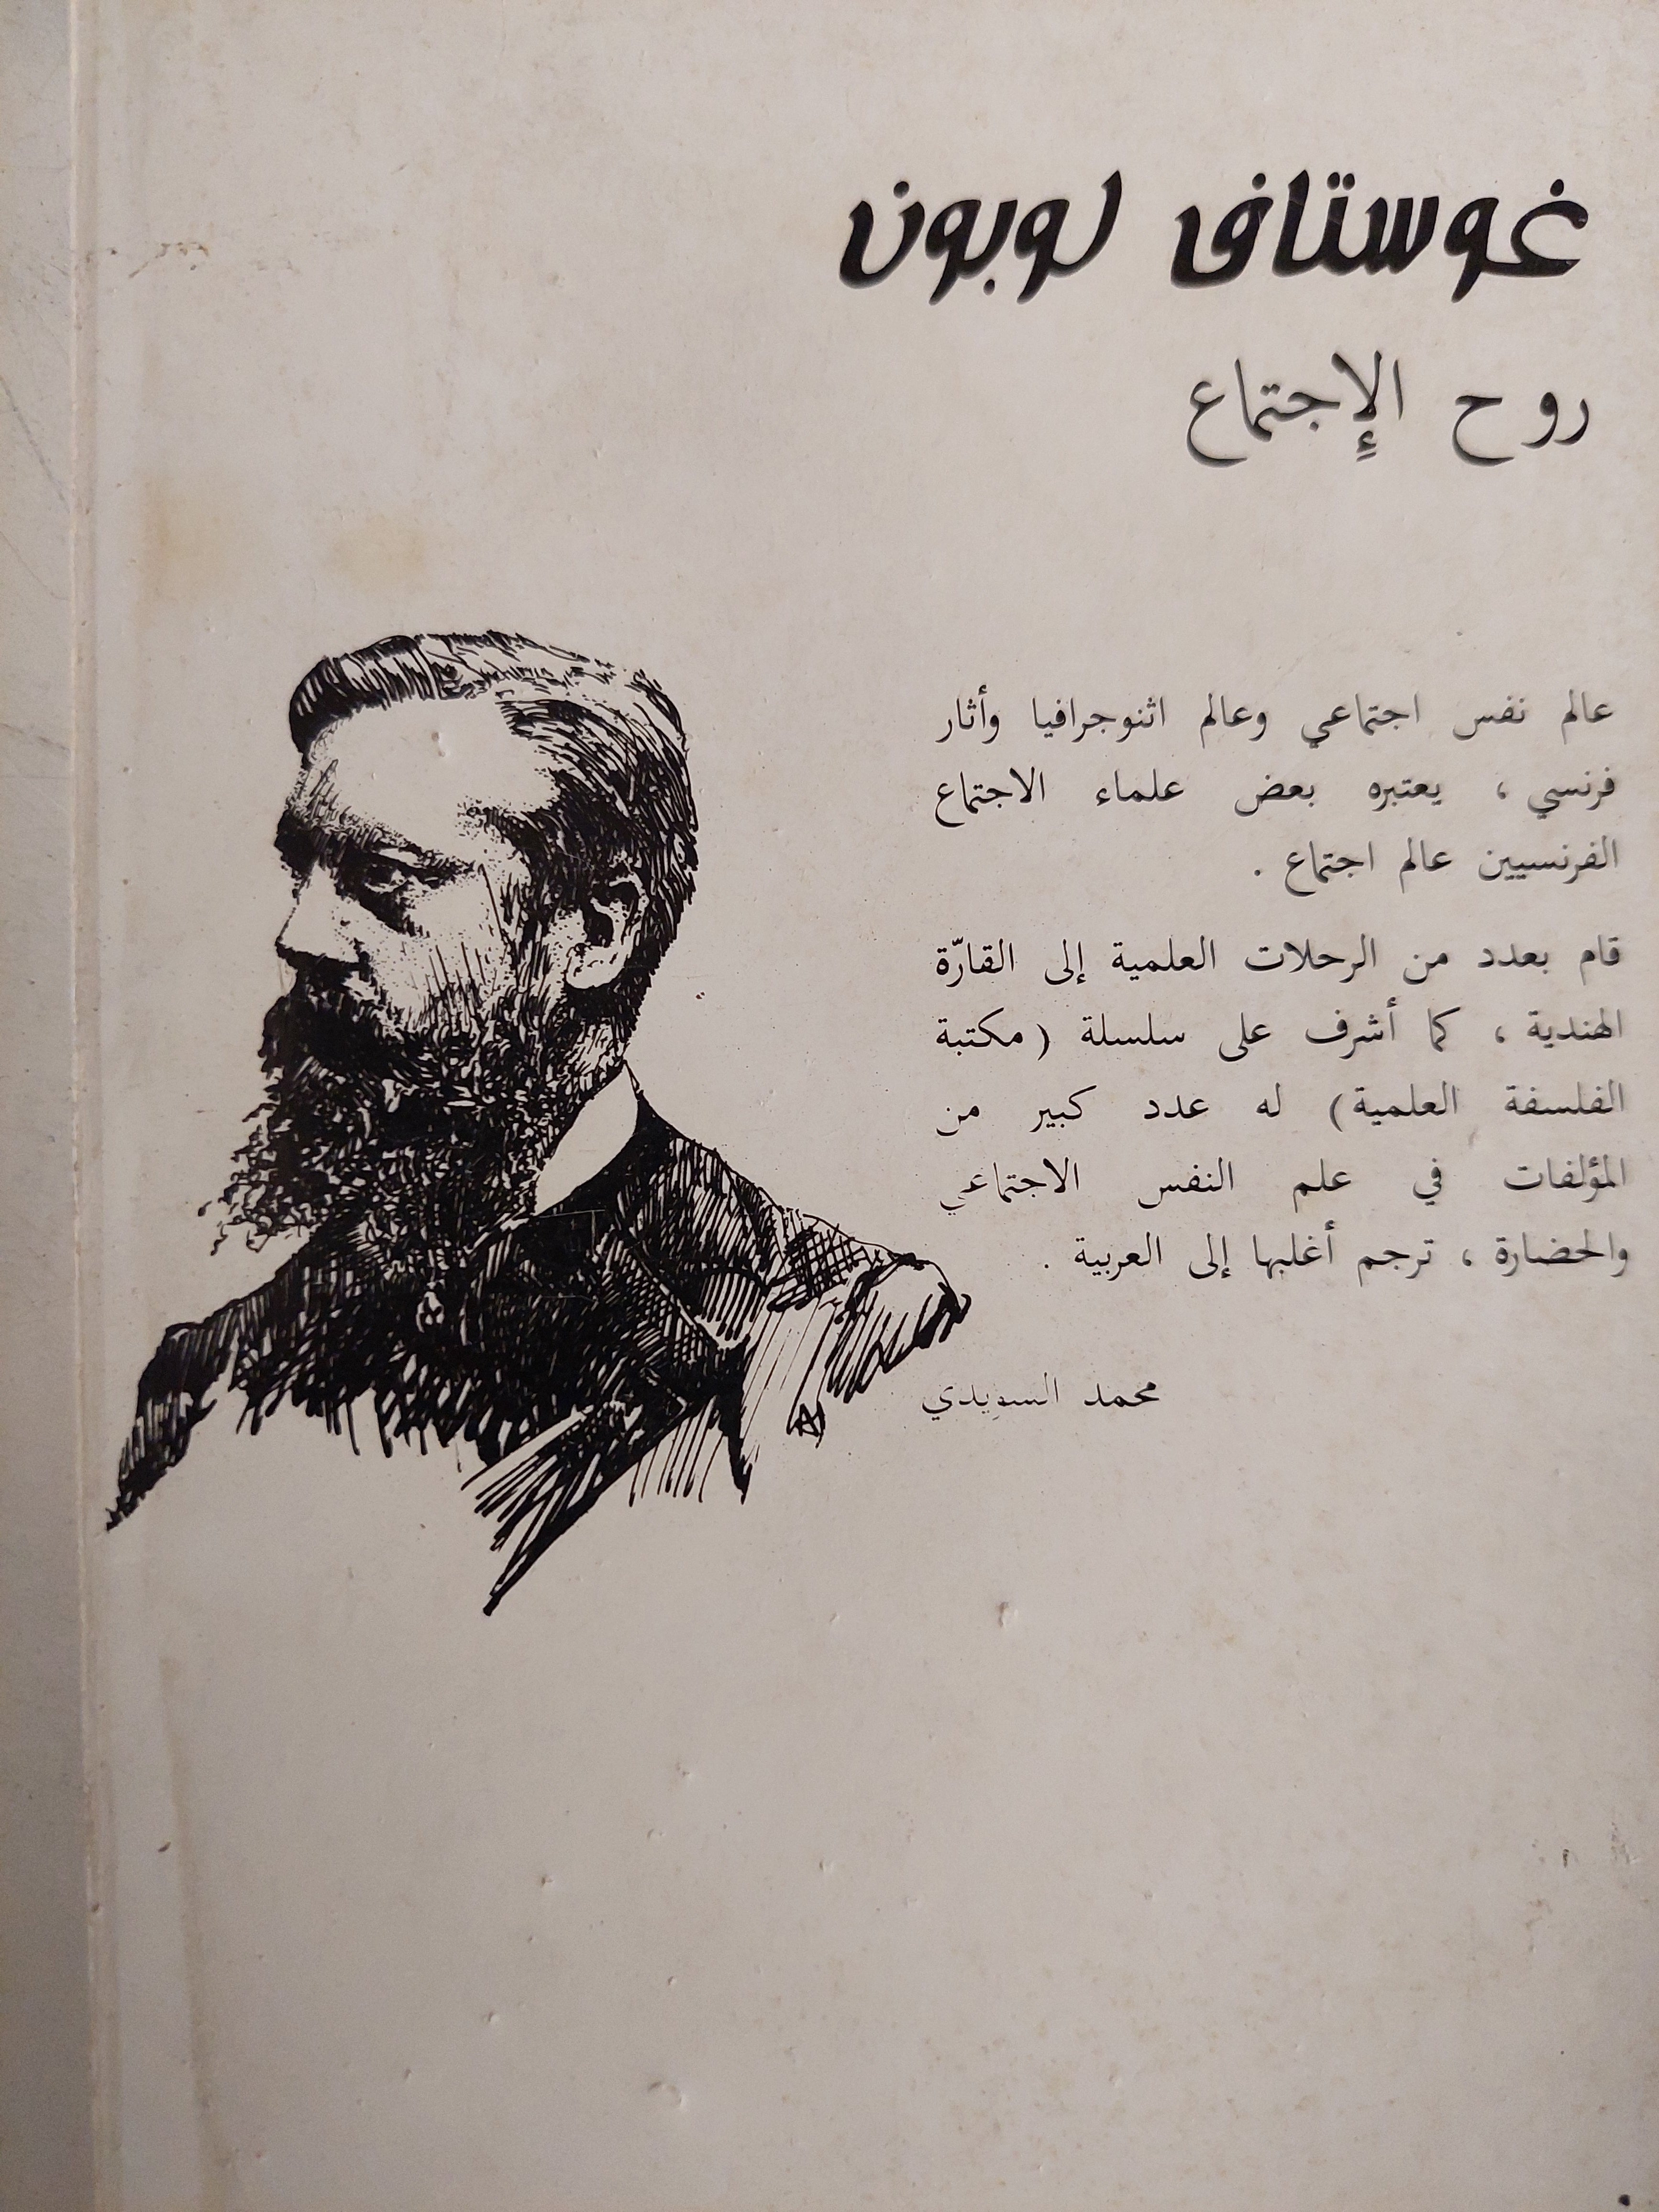 غوستاف لوبون
روح الإجتماع
عالم نفس اجتماعي وعالم اثنوجرافيا وأثار
فرنسي ، يعتبره بعض علماء الاجتماع
الفرنسيين عالم اجتماع .
قام بعدد من الرحلات العلمية إلى القارّة
الهندية ، كما أشرف على سلسلة (مكتبة
الفلسفة العلمية) له عدد كبير من
المؤلفات في علم النفس الاجتماعي
والحضارة ، ترجم أغلبها إلى العربية .
محمد السويدي